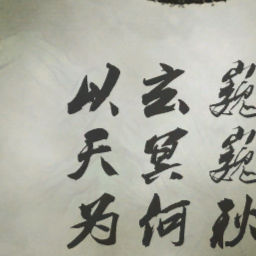 巍巍秋
玄冥何
以天为